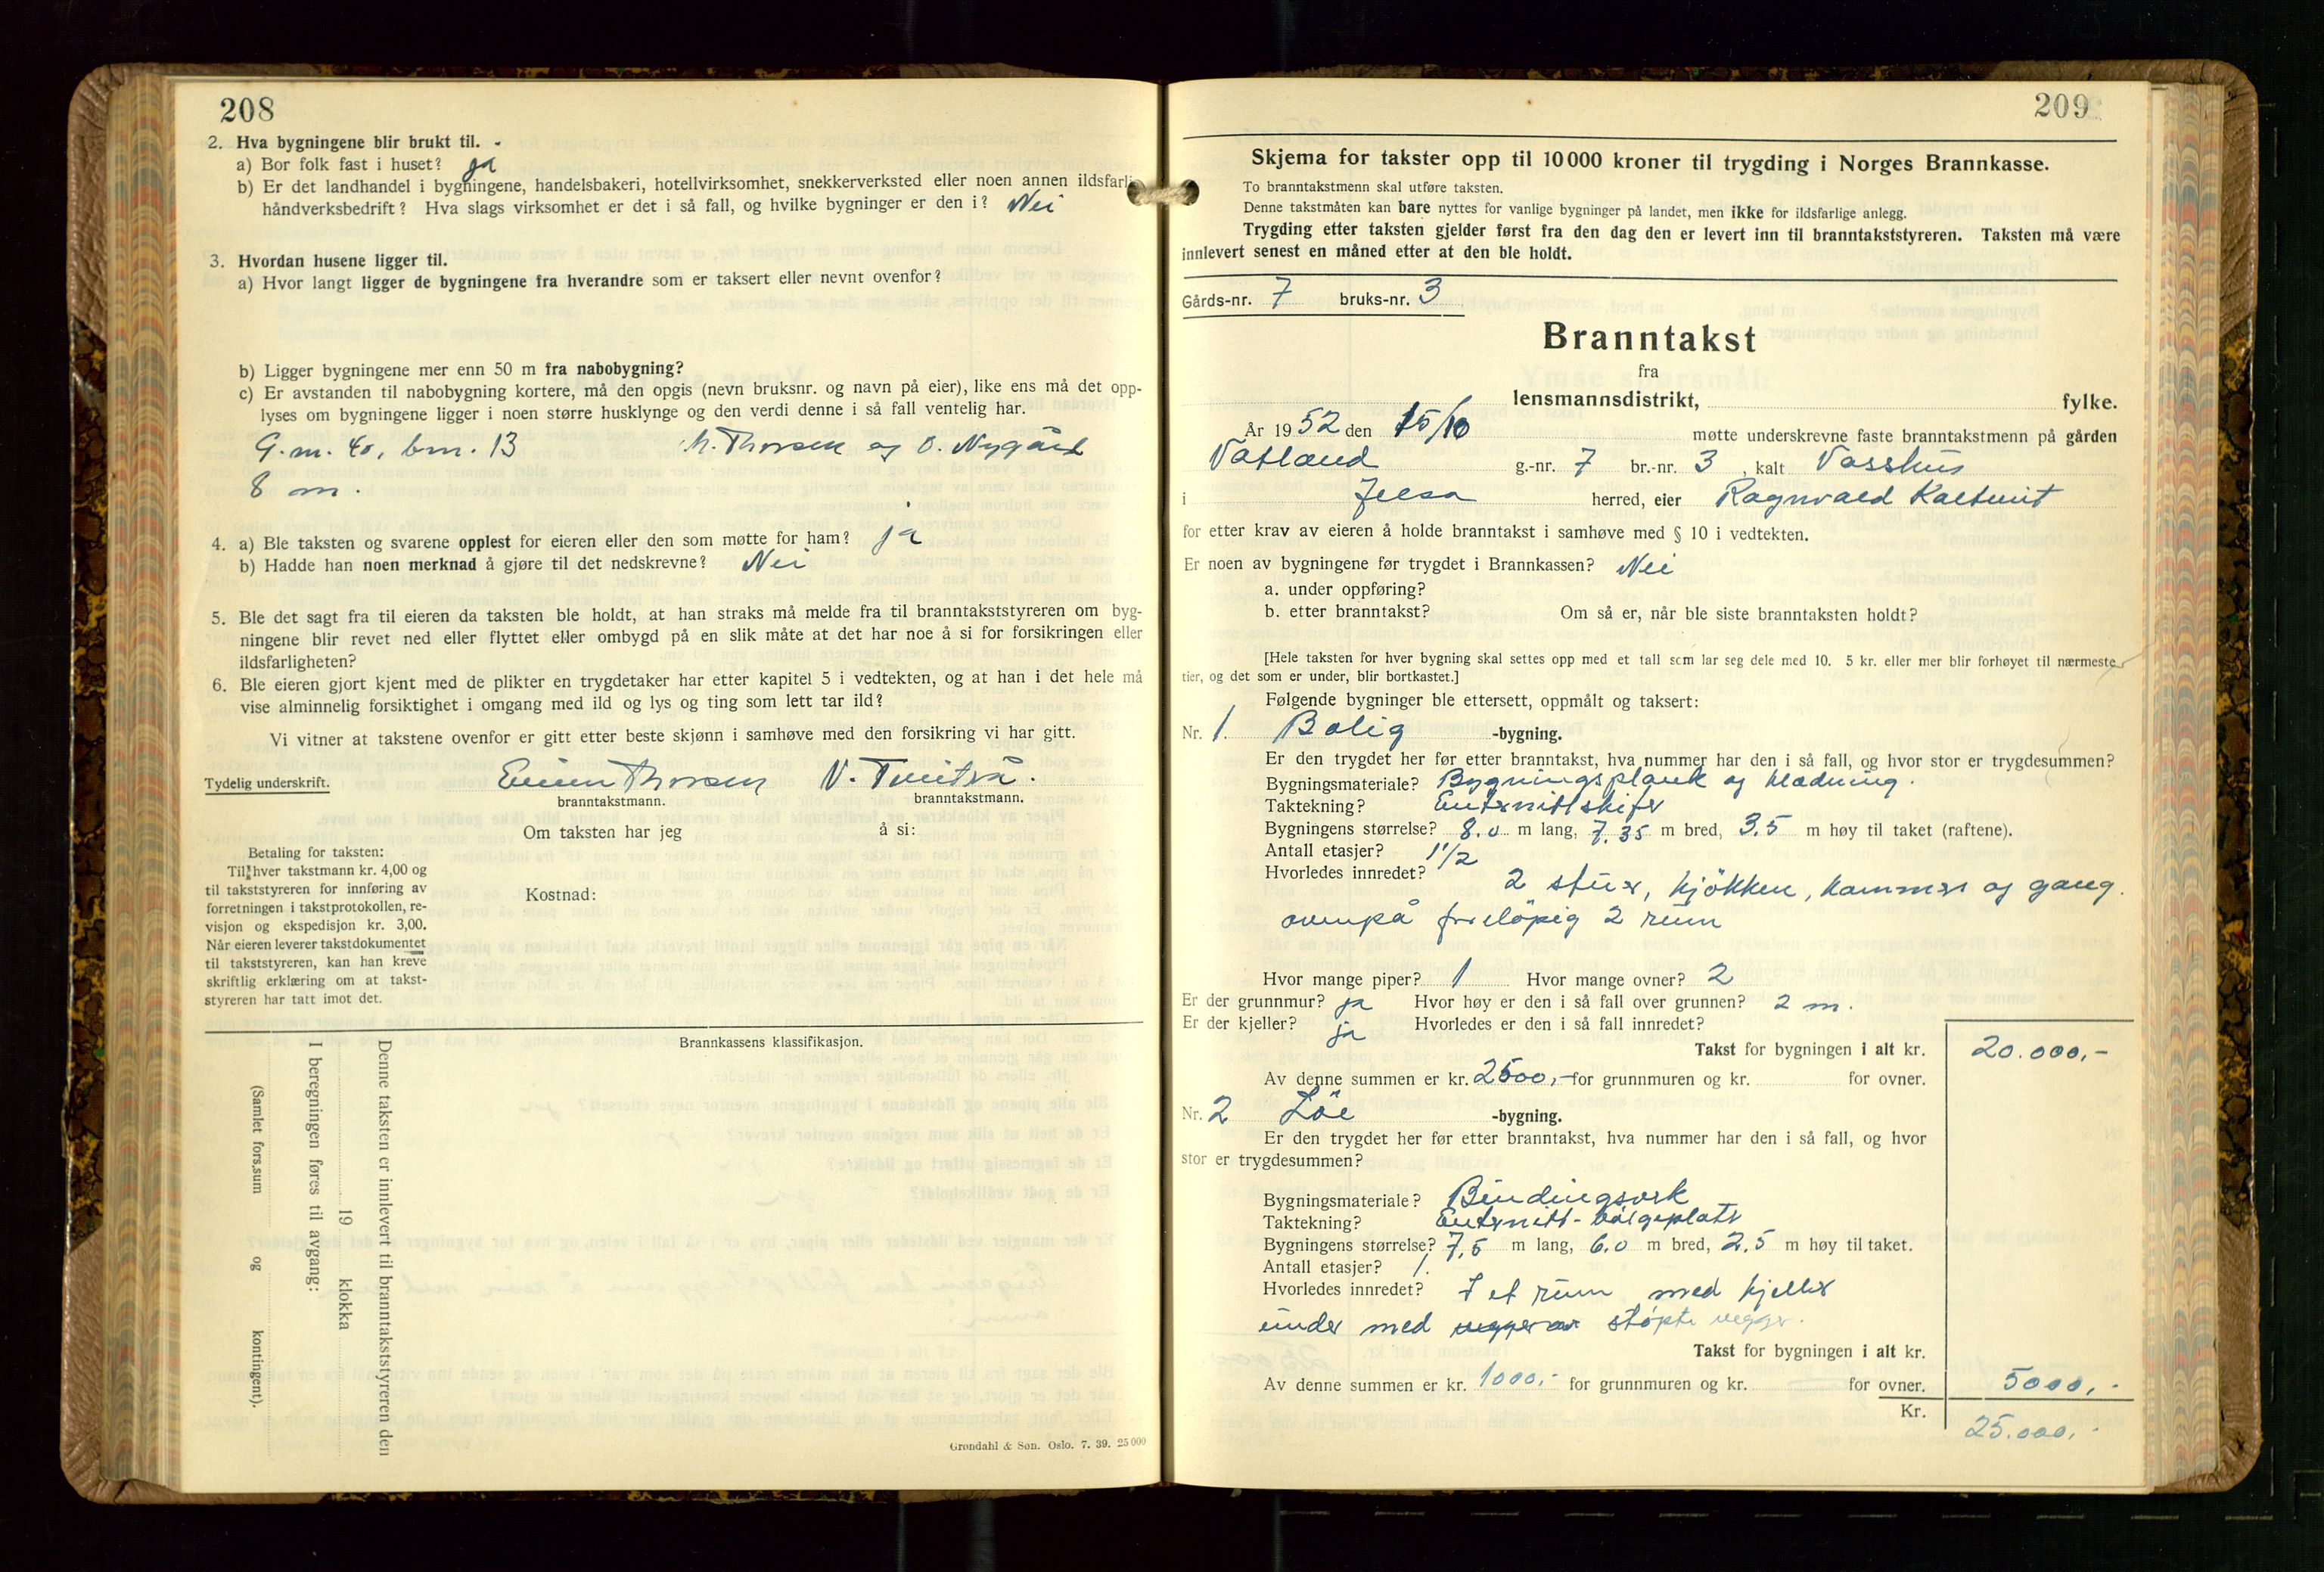 208
2. Hva bygningene blir brukt til. -
a) Bor folk fast i huset? ja
b) Er det landhandel i bygningene, handelsbakeri, hotellvirksomhet, snekkerverksted eller noen annen ildsfarlig
håndverksbedrift? Hva slags virksomhet er det i så fall, og hvilke bygninger er den i? Nei
3. Hvordan husene ligger til.
a) Hvor langt ligger de bygningene fra hverandre som er taksert eller nevnt ovenfor?
b) Ligger bygningene mer enn 50 m fra nabobygning?
c) Er avstanden til nabobygning kortere, må den opgis (nevn bruksnr. og navn på eier), like ens må det opp-
lyses om bygningene ligger i noen større husklynge og den verdi denne i så fall ventelig har.
G.nr. 40, bnr. 13 N. Thorsen og O. Nygård
8 m.
4. a) Ble taksten og svarene opplest for eieren eller den som møtte for ham? ja
b) Hadde han noen merknad å gjøre til det nedskrevne? Nei
5. Ble det sagt fra til eieren da taksten ble holdt, at han straks må melde fra til branntakststyreren om byg-
ningene blir revet ned eller flyttet eller ombygd på en slik måte at det har noe å si for forsikringen eller
ildsfarligheten?
6. Ble eieren gjort kjent med de plikter en trygdetaker har etter kapitel 5 i vedtekten, og at han i det hele må
vise alminnelig forsiktighet i omgang med ild og lys og ting som lett tar ild?
Vi vitner at takstene ovenfor er gitt etter beste skjønn i samhøve med den forsikring vi har gitt.
Tydelig underskrift. Thorsen
branntakstmann. branntakstmann.
Om taksten har jeg å si:
Betaling for taksten:
Til hver takstmann kr. 4,00 og
til takststyreren for innføring av
forretningen i takstprotokollen, re-
visjon og ekspedisjon kr. 3,00.
Når eieren leverer takstdokumentet
til takststyreren, kan han kreve
skriftlig erklæring om at takst-
styreren har tatt imot det.
Kostnad:
Brannkassens klassifikasjon.
Denne taksten er innlevert til branntakststyreren den
19 klokka
I beregningen føres til avgang:
(Samlet fors.sum og kontingent).
Grøndahl & Søn. Oslo. 7. 39. 25 000
209
Skjema for takster opp til 10 000 kroner til trygding i Norges Brannkasse.
To branntakstmenn skal utføre taksten.
Denne takstmåten kan bare nyttes for vanlige bygninger på landet, men ikke for ildsfarlige anlegg.
Trygding etter taksten gjelder først fra den dag den er levert inn til branntakststyreren. Taksten må være
innlevert senest en måned etter at den ble holdt.
Gårds-nr. 7 bruks-nr. 3
Branntakst
fra
lensmannsdistrikt, fylke.
År 1952 den 15/10 møtte underskrevne faste branntakstmenn på gården
Vatland g.-nr. 7 br.-nr. 3, kalt Vasshus
i Jelsa herred, eier Ragnvald Kaltveit
for etter krav av eieren å holde branntakst i samhøve med § 10 i vedtekten.
Er noen av bygningene før trygdet i Brannkassen? Nei
a. under oppføring?
b. etter branntakst? Om så er, når ble siste branntaksten holdt?
[Hele taksten for hver bygning skal settes opp med et tall som lar seg dele med 10. 5 kr. eller mer blir forhøyet til nærmeste
tier, og det som er under, blir bortkastet.]
Følgende bygninger ble ettersett, oppmålt og taksert:
Nr. 1. Bolig -bygning.
Er den trygdet her før etter branntakst, hva nummer har den i så fall, og hvor stor er trygdesummen?
Bygningsmateriale? Bygningsplank og klædning.
Taktekning? Euternittskifer
Bygningens størrelse? 8.0 m lang, 7.35 m bred, 3.5 m høy til taket (raftene).
Antall etasjer? 1 1/2
Hvorledes innredet? 2 stuer, kjökken, kammer og gang.
ovenpå foreløpig 2 rum
Hvor mange piper? 1 Hvor mange ovner? 2
Er der grunnmur? ja Hvor høy er den i så fall over grunnen? 2 m.
Er der kjeller? ja Hvorledes er den i så fall innredet?
Takst for bygningen i alt kr. 20.000,-
Av denne summen er kr. 2500,- for grunnmuren og kr. for ovner.
Nr. 2 Löe -bygning.
Er den trygdet her før etter branntakst, hva nummer har den i så fall, og hvor
stor er trygdesummen?
Bygningsmateriale? Bindingsverk
Taktekning? Euternitt-bölgeplater
Bygningens størrelse? 7,5 m lang, 6.0 m bred, 2.5 m høy til taket.
Antall etasjer? 1.
Hvorledes innredet? I et rum med kjeller
under med støpte vegger.
Takst for bygningen i alt kr.
Av denne summen er kr. 1000,- for grunnmuren og kr. for ovner. 5000,-
Kr. 25.000,-